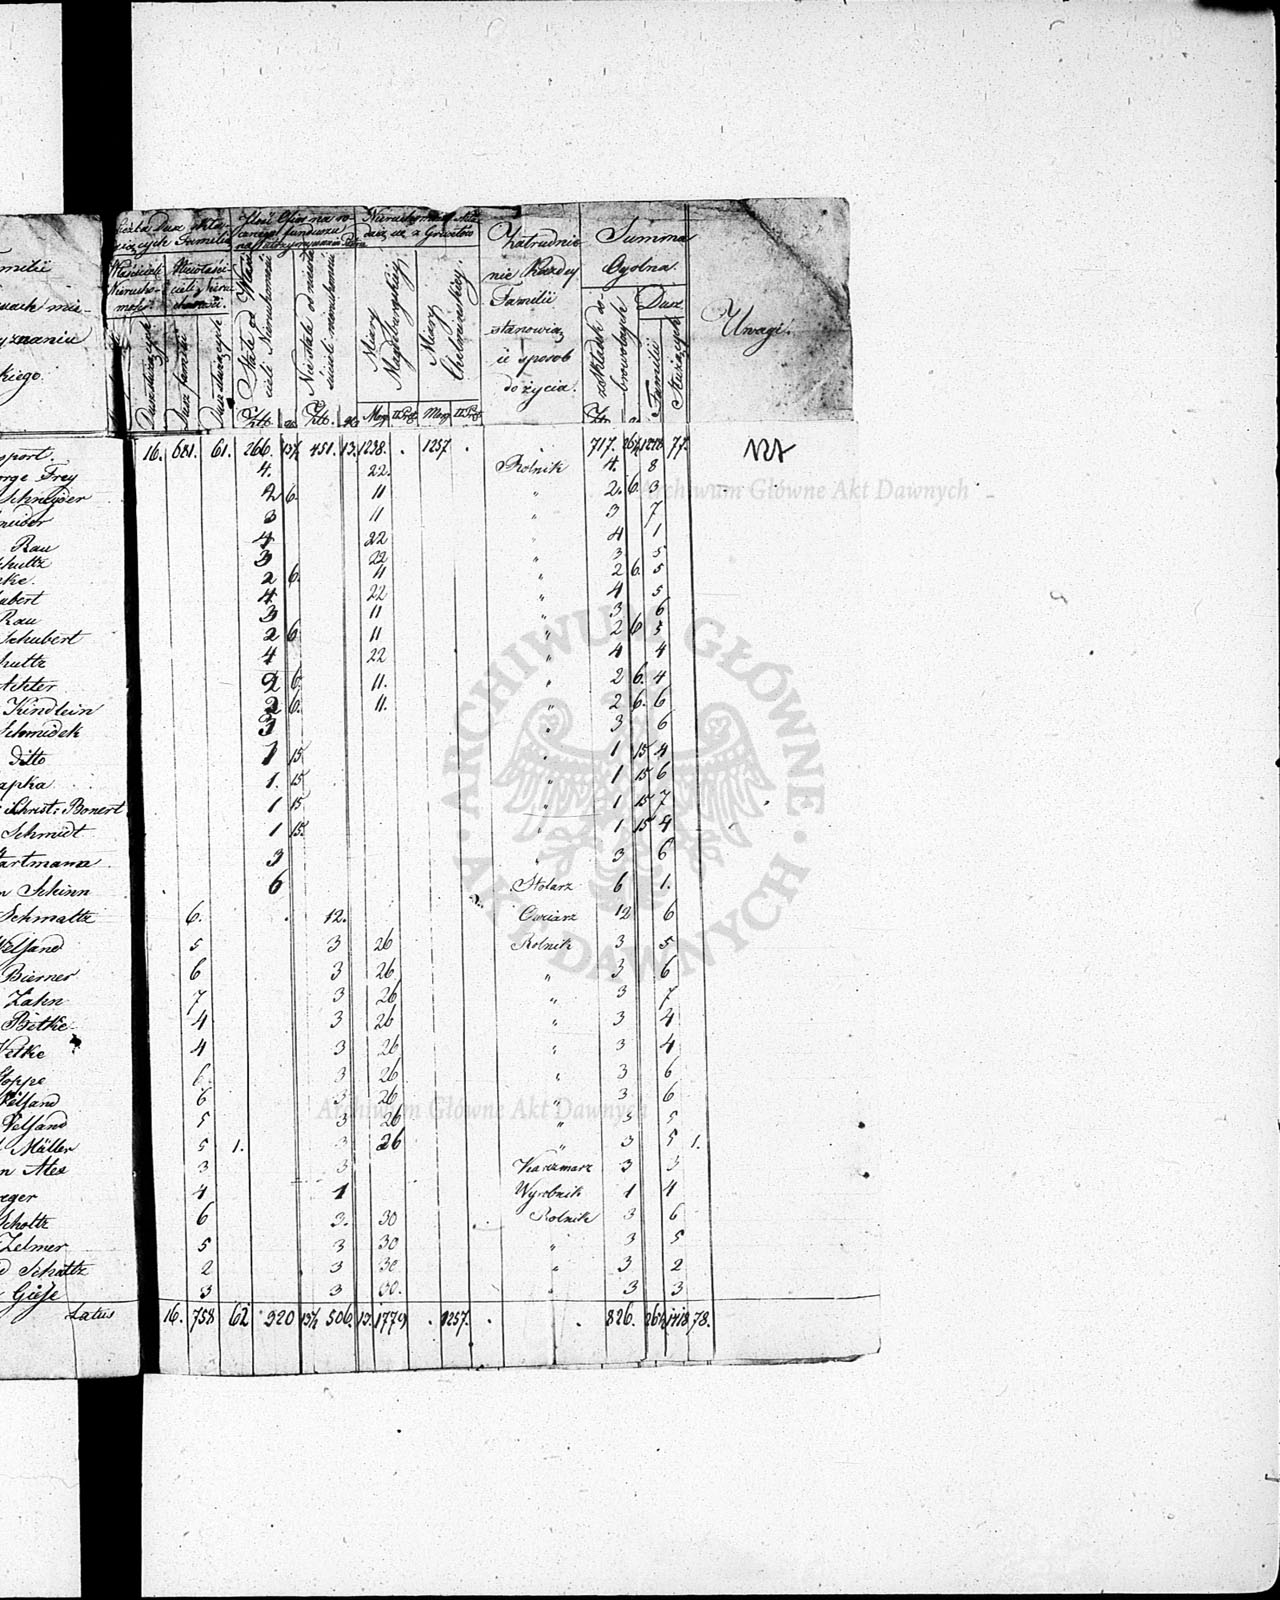 Liczba Dusz skła-
jących Familie
Ilość Ofiar na ro-
czniego funduszu
na utrzymywanie
Nieruchomości
Zatrudnie-
nie Każdey
Familii
stanowią-
ce sposob
do życia.
Summa
Ogolna.
Właścicieli
Nierucho-
mości
Niewłaści-
cieli nieru-
chomości.
Dusz służących
Dusz familii
Dusz służących
Stałe od Właści-
cieli Nieruchomości
Niestałe od niewła-
ścicieli nieruchomości
Miary
Magdeburskiey
Miary
Chełminskiey.
z Składek do-
browolnych
Dusz
Familii
Służących
Uwagi.
milii
yznaniu
kiego.
Złto. Złto. Morg Morg
port. 16. 681. 61. 266. 13½ 451. 13. 1238. . 1257 . 717. 26½ 1278 77.
orge Frey 4. 22. Rolnik 4. 8
Schneyder 2 6. 11 " 2. 6. 3
neider 3 11 " 3 7
Rau 4 22 " 4 1
chultz 3 22 " 3 5
ke. 2 6. 11 " 2 6. 5
ubert 4 22 " 4 5
Rau 3 11 " 3 6
Schubert 2 6 11 " 2 6 3
hultz 4 22 " 4 4
chter 2 6. 11. " 2 6. 4
Kindlein 2 6. 11. " 2 6. 6
Schmidek 3 " 3 6
ditto 1 15 " 1 15 4
apka 1. 15 " 1 15 6
Christ: Bonert 1 15 " 1 15 7
Schmidt 1 15. " 1 15 4
artmann 3 " 3 6
n Schinn 6 Stolarz 6 1.
Schmaltz 6. 12. Owciarz 12 6
Welsand 5 3 26 Rolnik 3 5
Bierner 6 3 26 " 3 6
Zahn 7 3 26 " 3 7
Betke 4 3 26 " 3 4
Vetke 4 3 26 " 3 4
Hoppe 6. 3 26 " 3 6
Velsand 6 3 26 " 3 6
Velsand 5 3 26 " 3 5
Müller 5 1. 3 26 " 3 5 1.
n Alex 3 3 Karczmarz 3 3
reger 4 1 Wyrobnik 1 4
Scholtz 6 3. 30 Rolnik 3 6
Zelmer 5 3 30 " 3 5
Schultz 2 3 30 " 3 2
Giese 3 3 30. " 3 3
Latus 16. 758 62 320 13½ 506. 13. 1779 . 1257. . . 826. 26½ 1418 78.
Archiwum Główne Akt Dawnych
Archiwum Główne Akt Dawnych
ARCHIWUM GŁÓWNE
AKT DAWNYCH